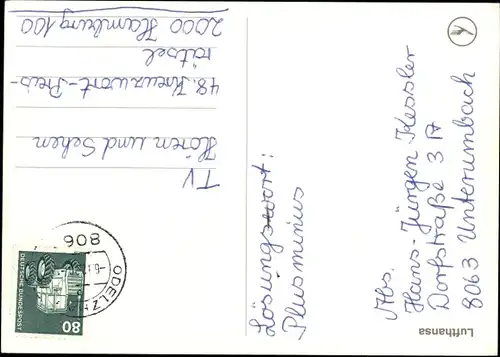 Lösungswort:
Plusminus
Abs.
Hans-Jürgen Kessler
Dorfstraße 3A
8063 Unterumbach
Lufthansa
TV
Hören und Sehen
48. Kreuzwort-Preis-
rätsel
2000 Hamburg 100
806
ODELZ
DEUTSCHE BUNDESPOST
80